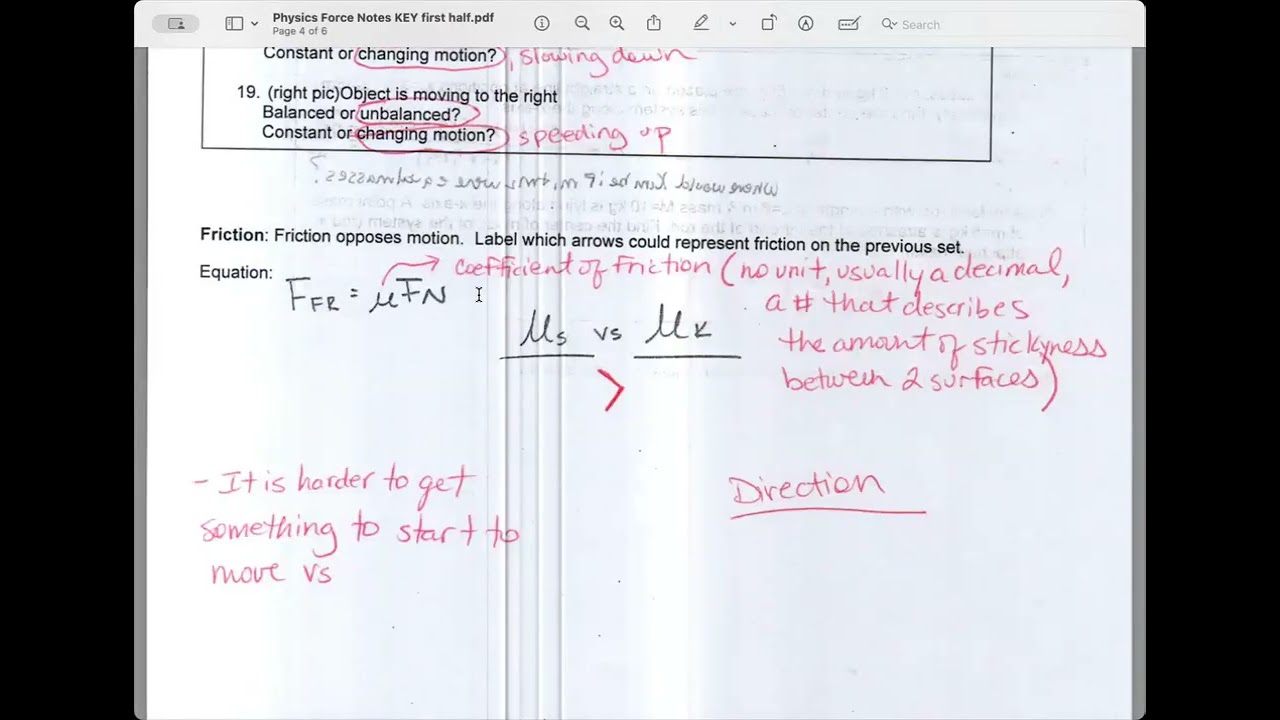 Physics Force Notes KEY first half.pdf
Page 4 of 6
Search
Constant or changing motion?, slowing down
19. (right pic)Object is moving to the right
Balanced or unbalanced?
Constant or changing motion? speeding up
Friction: Friction opposes motion. Label which arrows could represent friction on the previous set.
Equation: F_FR = μFN → coefficient of friction (no unit, usually a decimal,
a # that describes
the amount of stickyness
between 2 surfaces)
μs vs μk
>
- It is harder to get
something to start to
move vs
Direction